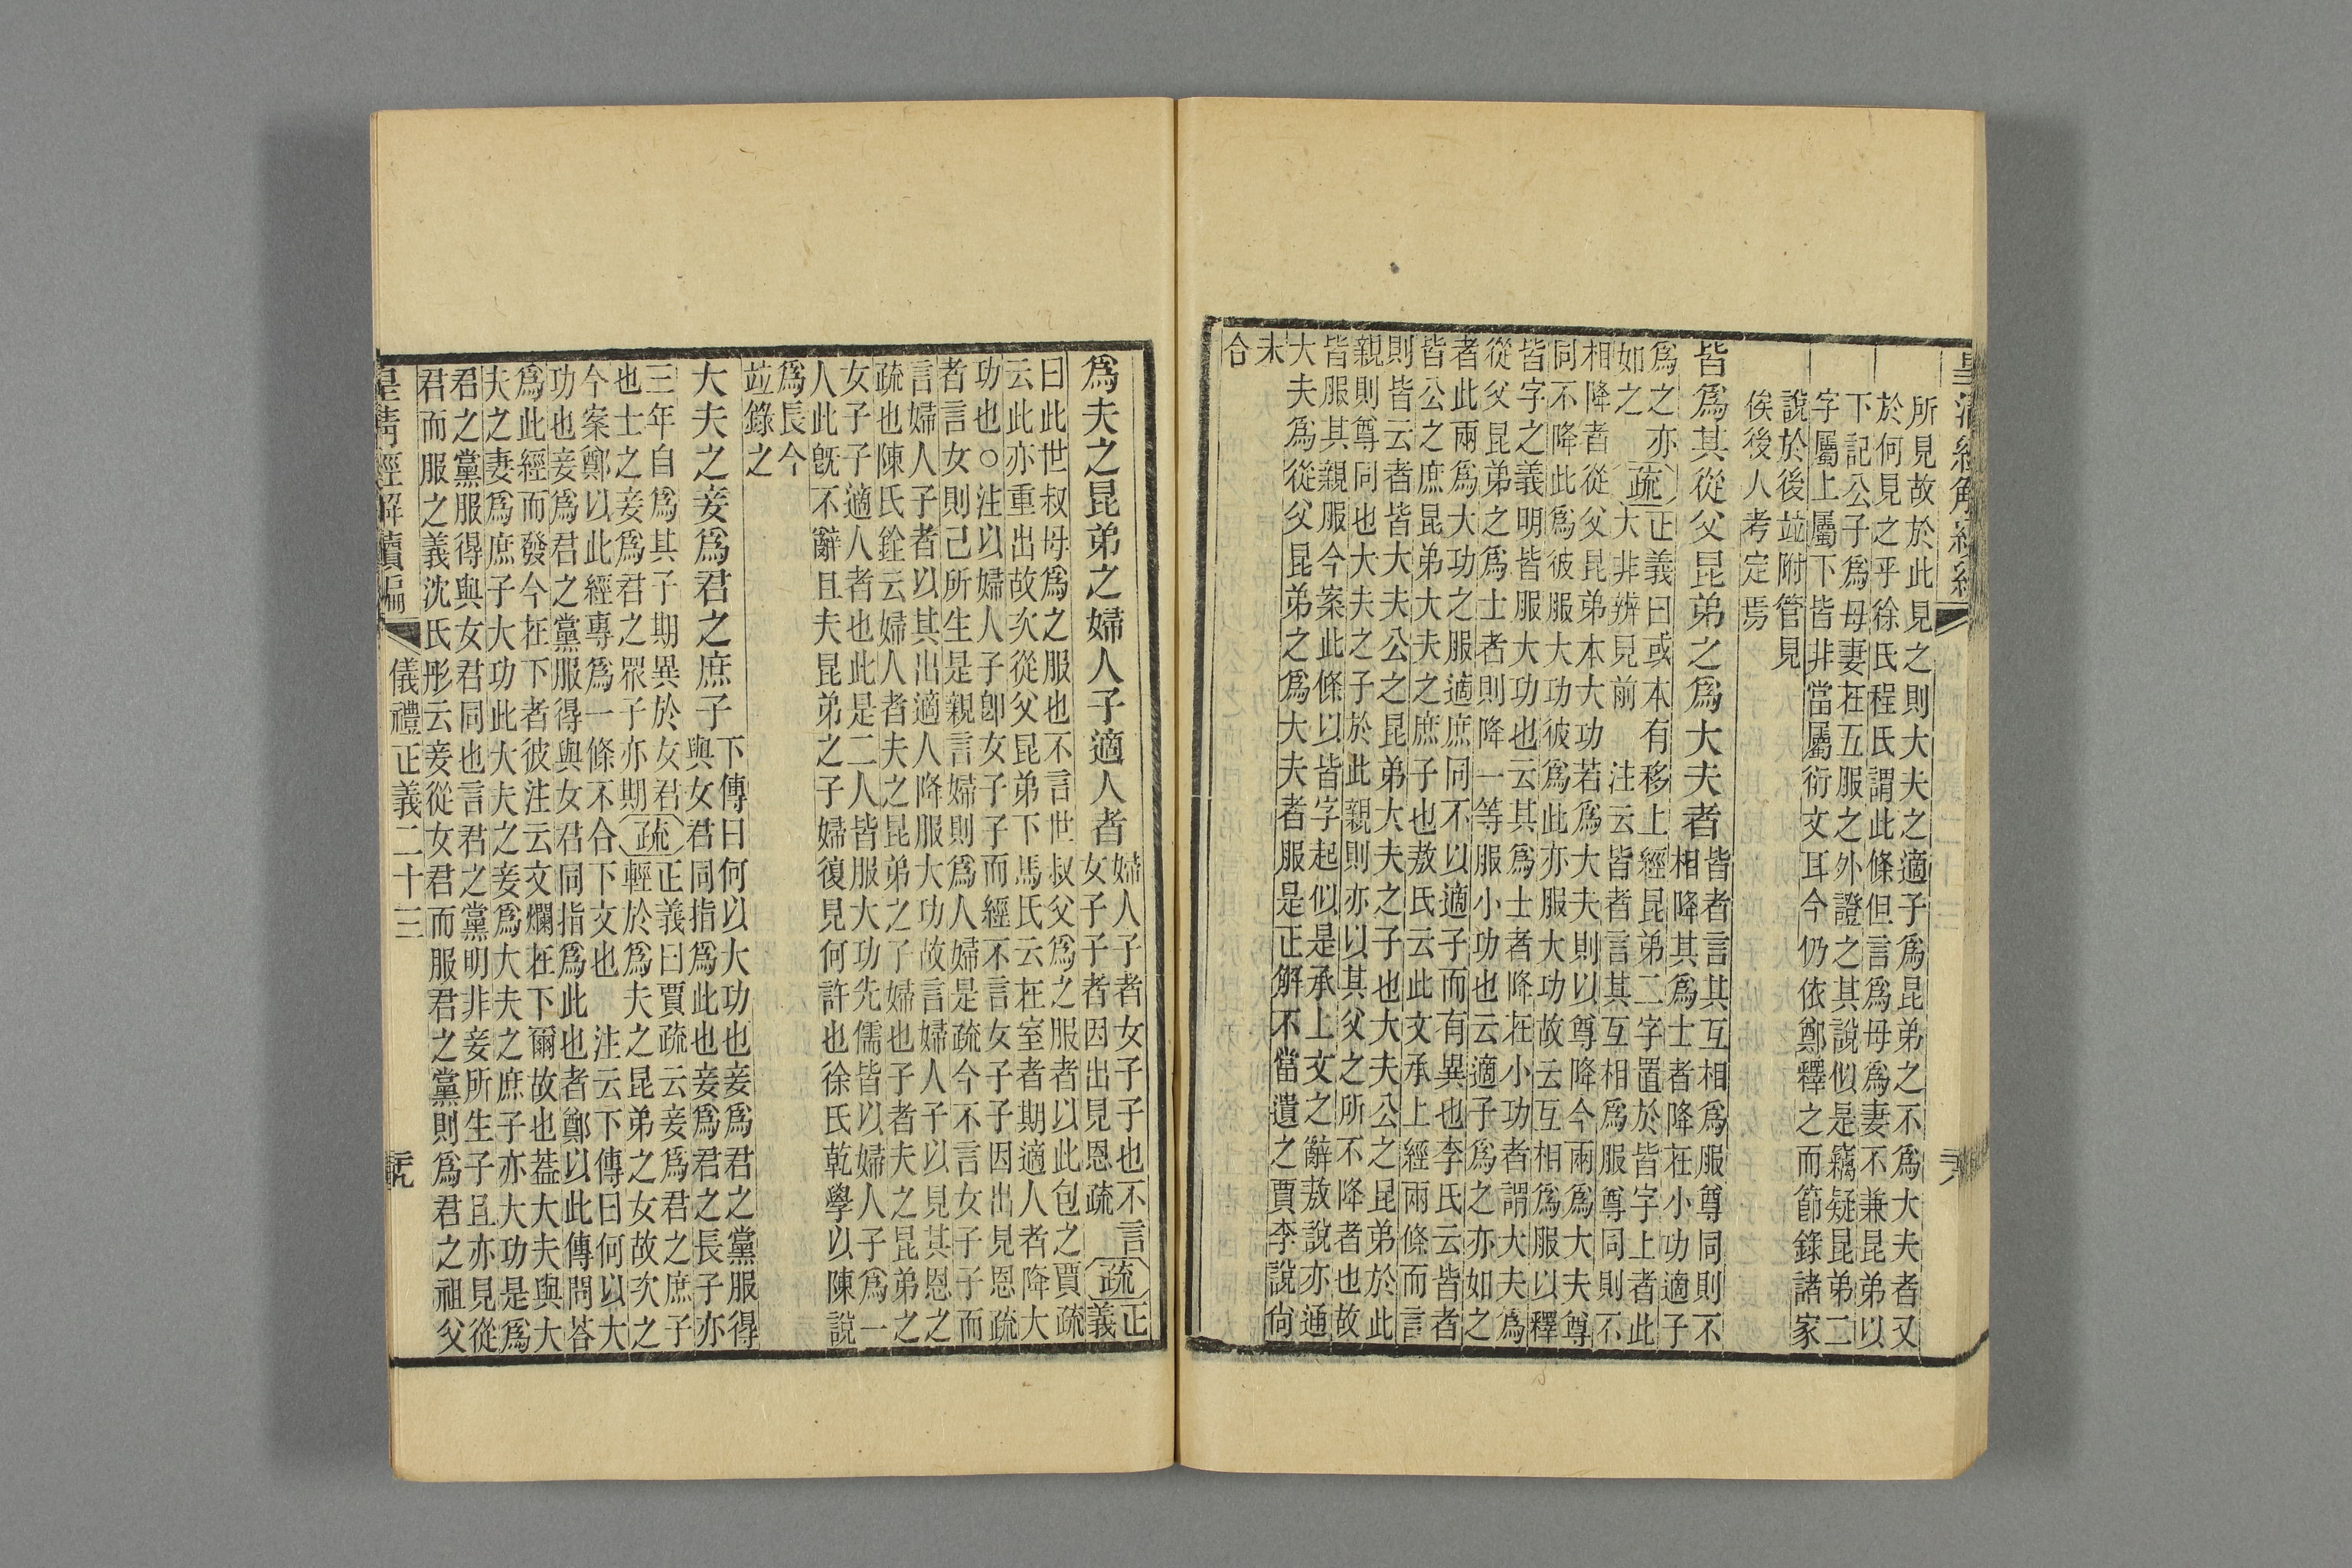 皇清經解續編
所見故於此見之則大夫之適子爲昆弟之不爲大夫者又
於何見之乎徐氏程氏謂此條但言爲母爲妻不兼昆弟以
下記公子爲母妻在五服之外證之其說似是竊疑昆弟二
字屬上屬下皆非當屬衍文耳今仍依鄭釋之而節錄諸家
說於後竝附管見
俟後人考定焉
皆爲其從父昆弟之爲大夫者
皆者言其互相爲服尊同則不
相降其爲士者降在小功適子
爲之亦
如之
疏
正義曰或本有移上經昆弟二字置於皆字上者此
大非辨見前 注云皆者言其互相爲服尊同則不
相降者從父昆弟本大功若爲大夫則以尊降今兩爲大夫尊
同不降此爲彼服大功彼爲此亦服大功故云互相爲服以釋
皆字之義明皆服大功也云其爲士者降在小功者謂大夫爲
從父昆弟之爲士者則降一等服小功也云適子爲之亦如之
者此兩爲大功之服適庶同不以適子而有異也李氏云皆者
皆公之庶昆弟大夫之庶子也敖氏云此文承上經兩條而言
則皆云者皆大夫公之昆弟大夫之子也大夫公之昆弟於此
親則尊同也大夫之子於此親則亦以其父之所不降者也故
皆服其親服今案此條以皆字起似是承上文之辭敖說亦通
大夫爲從父昆弟之爲大夫者服是正解不當遺之賈李說尙
未
合
六
爲夫之昆弟之婦人子適人者
婦人子者女子子也不言
女子子者因出見恩疏
疏
正
義
曰此世叔母爲之服也不言世叔父爲之服者以此包之賈疏
云此亦重出故次從父昆弟下馬氏云在室者期適人者降大
功也○注以婦人子卽女子子而經不言女子子因出見恩疏
者言女則己所生是親言婦則爲人婦是疏今不言女子子而
言婦人子者以其出適人降服大功故言婦人子以見其恩之
疏也陳氏銓云婦人者夫之昆弟之子婦也子者夫之昆弟之
女子子適人者也此是二人皆服大功先儒皆以婦人子爲一
人此旣不辭且夫昆弟之子婦復見何許也徐氏乾學以陳說
爲長今
竝錄之
大夫之妾爲君之庶子
下傳曰何以大功也妾爲君之黨服得
與女君同指爲此也妾爲君之長子亦
三年自爲其子期異於女君
也士之妾爲君之眾子亦期
疏
正義曰賈疏云妾爲君之庶子
輕於爲夫之昆弟之女故次之
今案鄭以此經專爲一條不合下文也 注云下傳曰何以大
功也妾爲君之黨服得與女君同指爲此也者鄭以此傳問荅
爲此經而發今在下者彼注云文爛在下爾故也葢大夫與大
夫之妻爲庶子大功此大夫之妾爲大夫之庶子亦大功是爲
君之黨服得與女君同也言君之黨明非妾所生子且亦見從
君而服之義沈氏彤云妾從女君而服君之黨則爲君之祖父
皇清經解續編
儀禮正義二十三